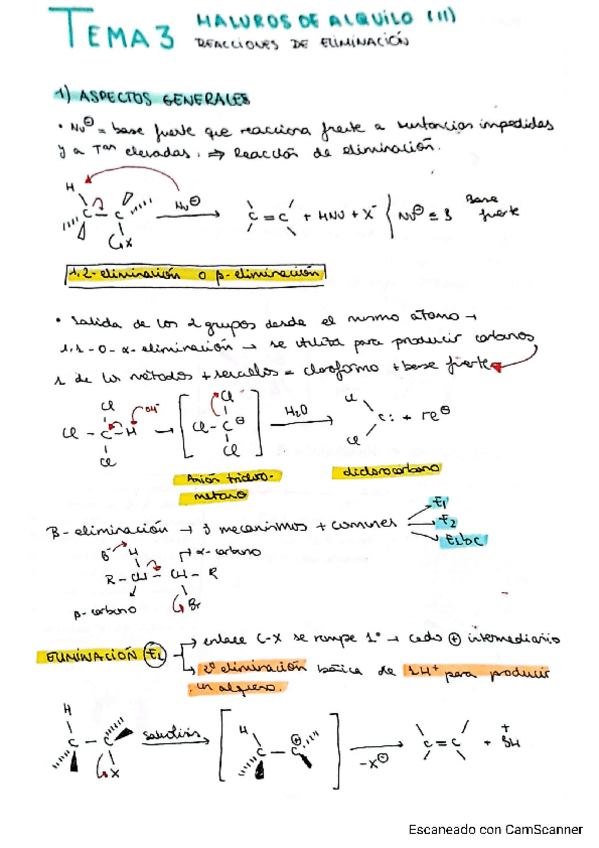 TEMA 3 HALUROS DE ALQUILO (II)
REACCIONES DE ELIMINACIÓN
1) ASPECTOS GENERALES
• Nu⊖ = base fuerte que reacciona frente a sustancias impedidas
y a Tas elevadas. ⇒ Reacción de eliminación.
H
C - C Nu⊖ → C = C + HNu + X⁻ { Nu⊖ = B Base
X fuerte
1,2-eliminación o β-eliminación
• Salida de los 2 grupos desde el mismo átomo →
1,1 - O - α-eliminación → se utiliza para producir carbenos
1 de los métodos + sencillos = cloroformo + base fuerte
Cl OH⁻ Cl H2O Cl
Cl - C - H → Cl - C⊖ → C: +
Cl Cl Cl
Anión tricloro-
metano
diclorocarbeno
β-eliminación → 3 mecanismos + comunes → E1
E2
E1bc
B⁻ H α-carbono
R - CH - CH - R
β-carbono Br
ELIMINACIÓN E1 → enlace C-X se rompe 1º → carbo ⊕ intermediario
2º eliminación básica de 1H⁺ para producir
un alqueno.
H
C - C solvólisis → H C - C⊕ → C = C +
X -X⊖
Escaneado con CamScanner